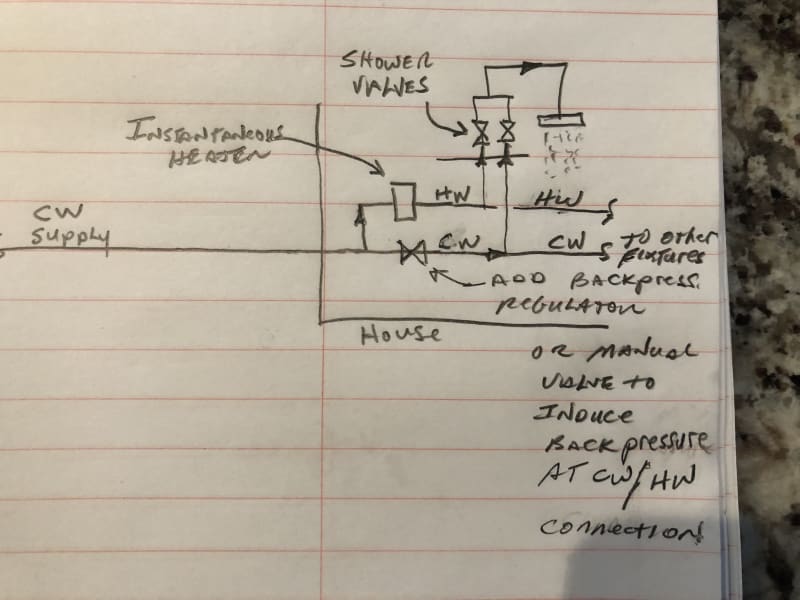 SHOWER
VALVES
INSTANTANEOUS
HEATER
HW
HW
CW
SUPPLY
CW
CW
TO OTHER
FIXTURES
ADD BACKPRESS.
REGULATOR
HOUSE
OR MANUAL
VALVE TO
INDUCE
BACKPRESSURE
AT CW/HW
CONNECTION